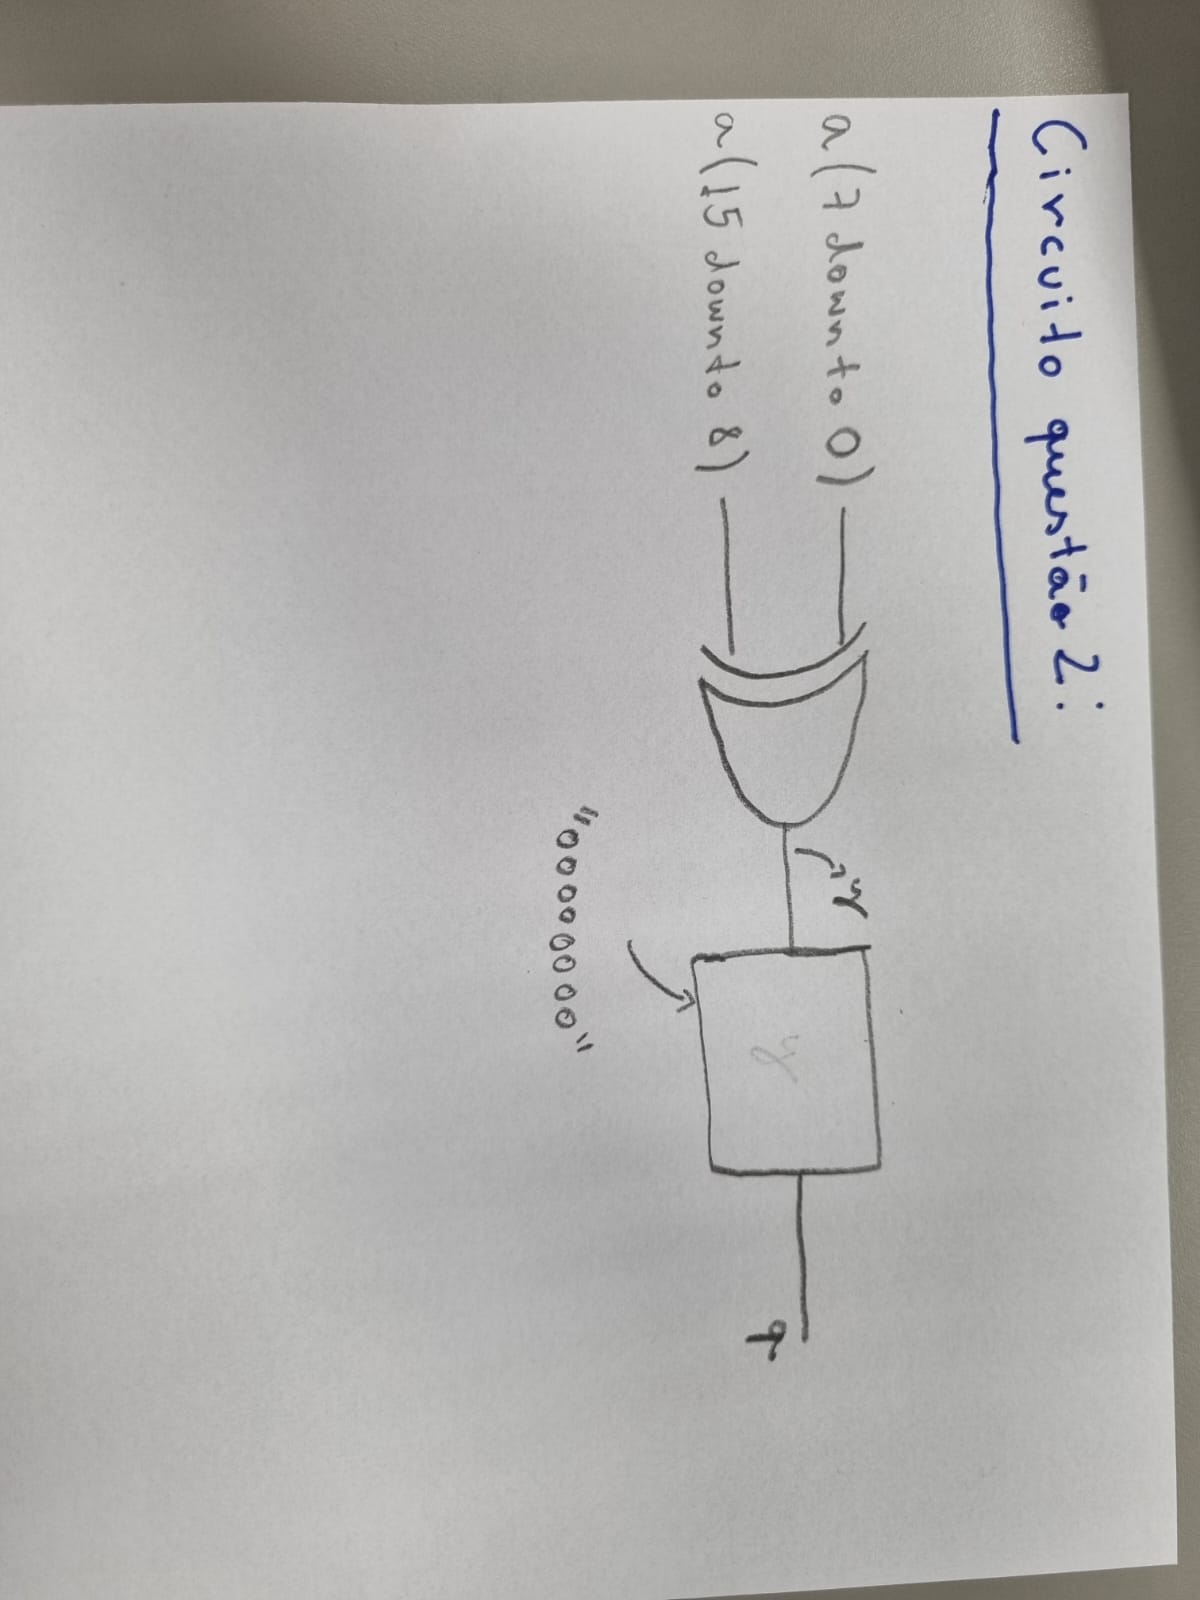 Circuito questão 2:
a(7 downto 0)
a(15 downto 8)
y
y
"00000000"
q